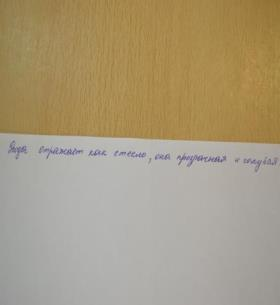 Вода отражает как стекло, она прозрачная и голубая